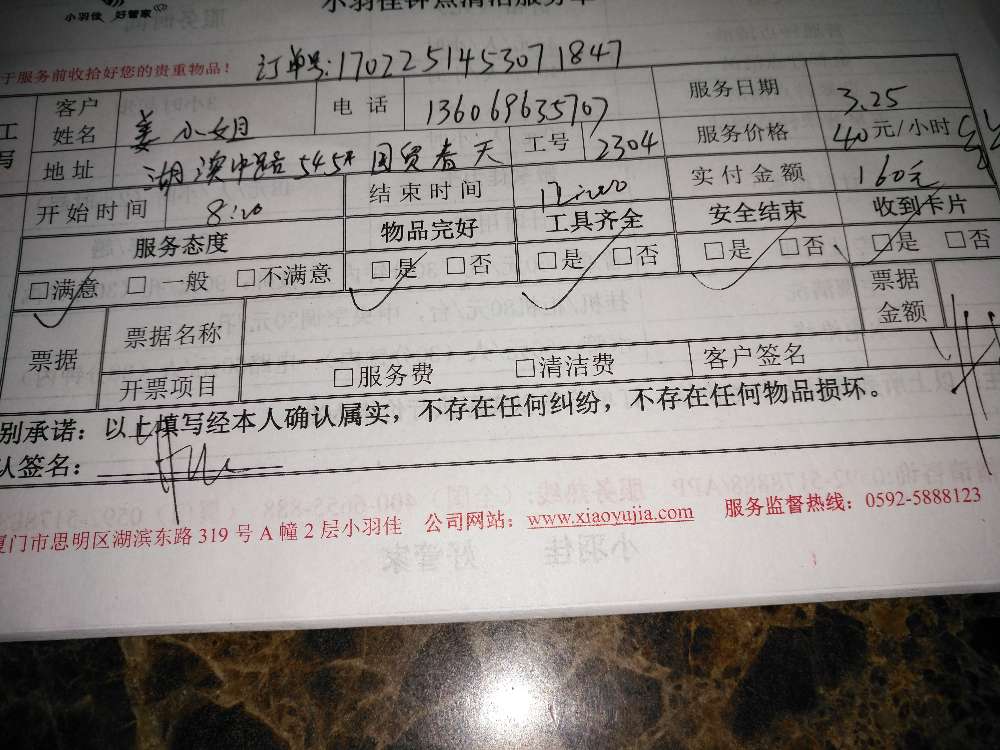 小羽佳 好管家
小羽佳钟点清洁服务单
于服务前收拾好您的贵重物品！ 订单号:1702251453071847
工 客户姓名 姜小姐 电话 136069635707 服务日期 3.25
写 地址 湖滨中路545# 国贸春天 工号 2304 服务价格 40元/小时
开始时间 8:00 结束时间 12:00 实付金额 160元
服务态度 物品完好 工具齐全 安全结束 收到卡片
□满意 □一般 □不满意 □是 □否 □是 □否 □是 □否 □是 □否
票据 票据名称 票据金额
开票项目 □服务费 □清洁费 客户签名
别承诺：以上填写经本人确认属实，不存在任何纠纷，不存在任何物品损坏。
认签名：
厦门市思明区湖滨东路319号A幢2层小羽佳 公司网站：www.xiaoyujia.com 服务监督热线：0592-5888123